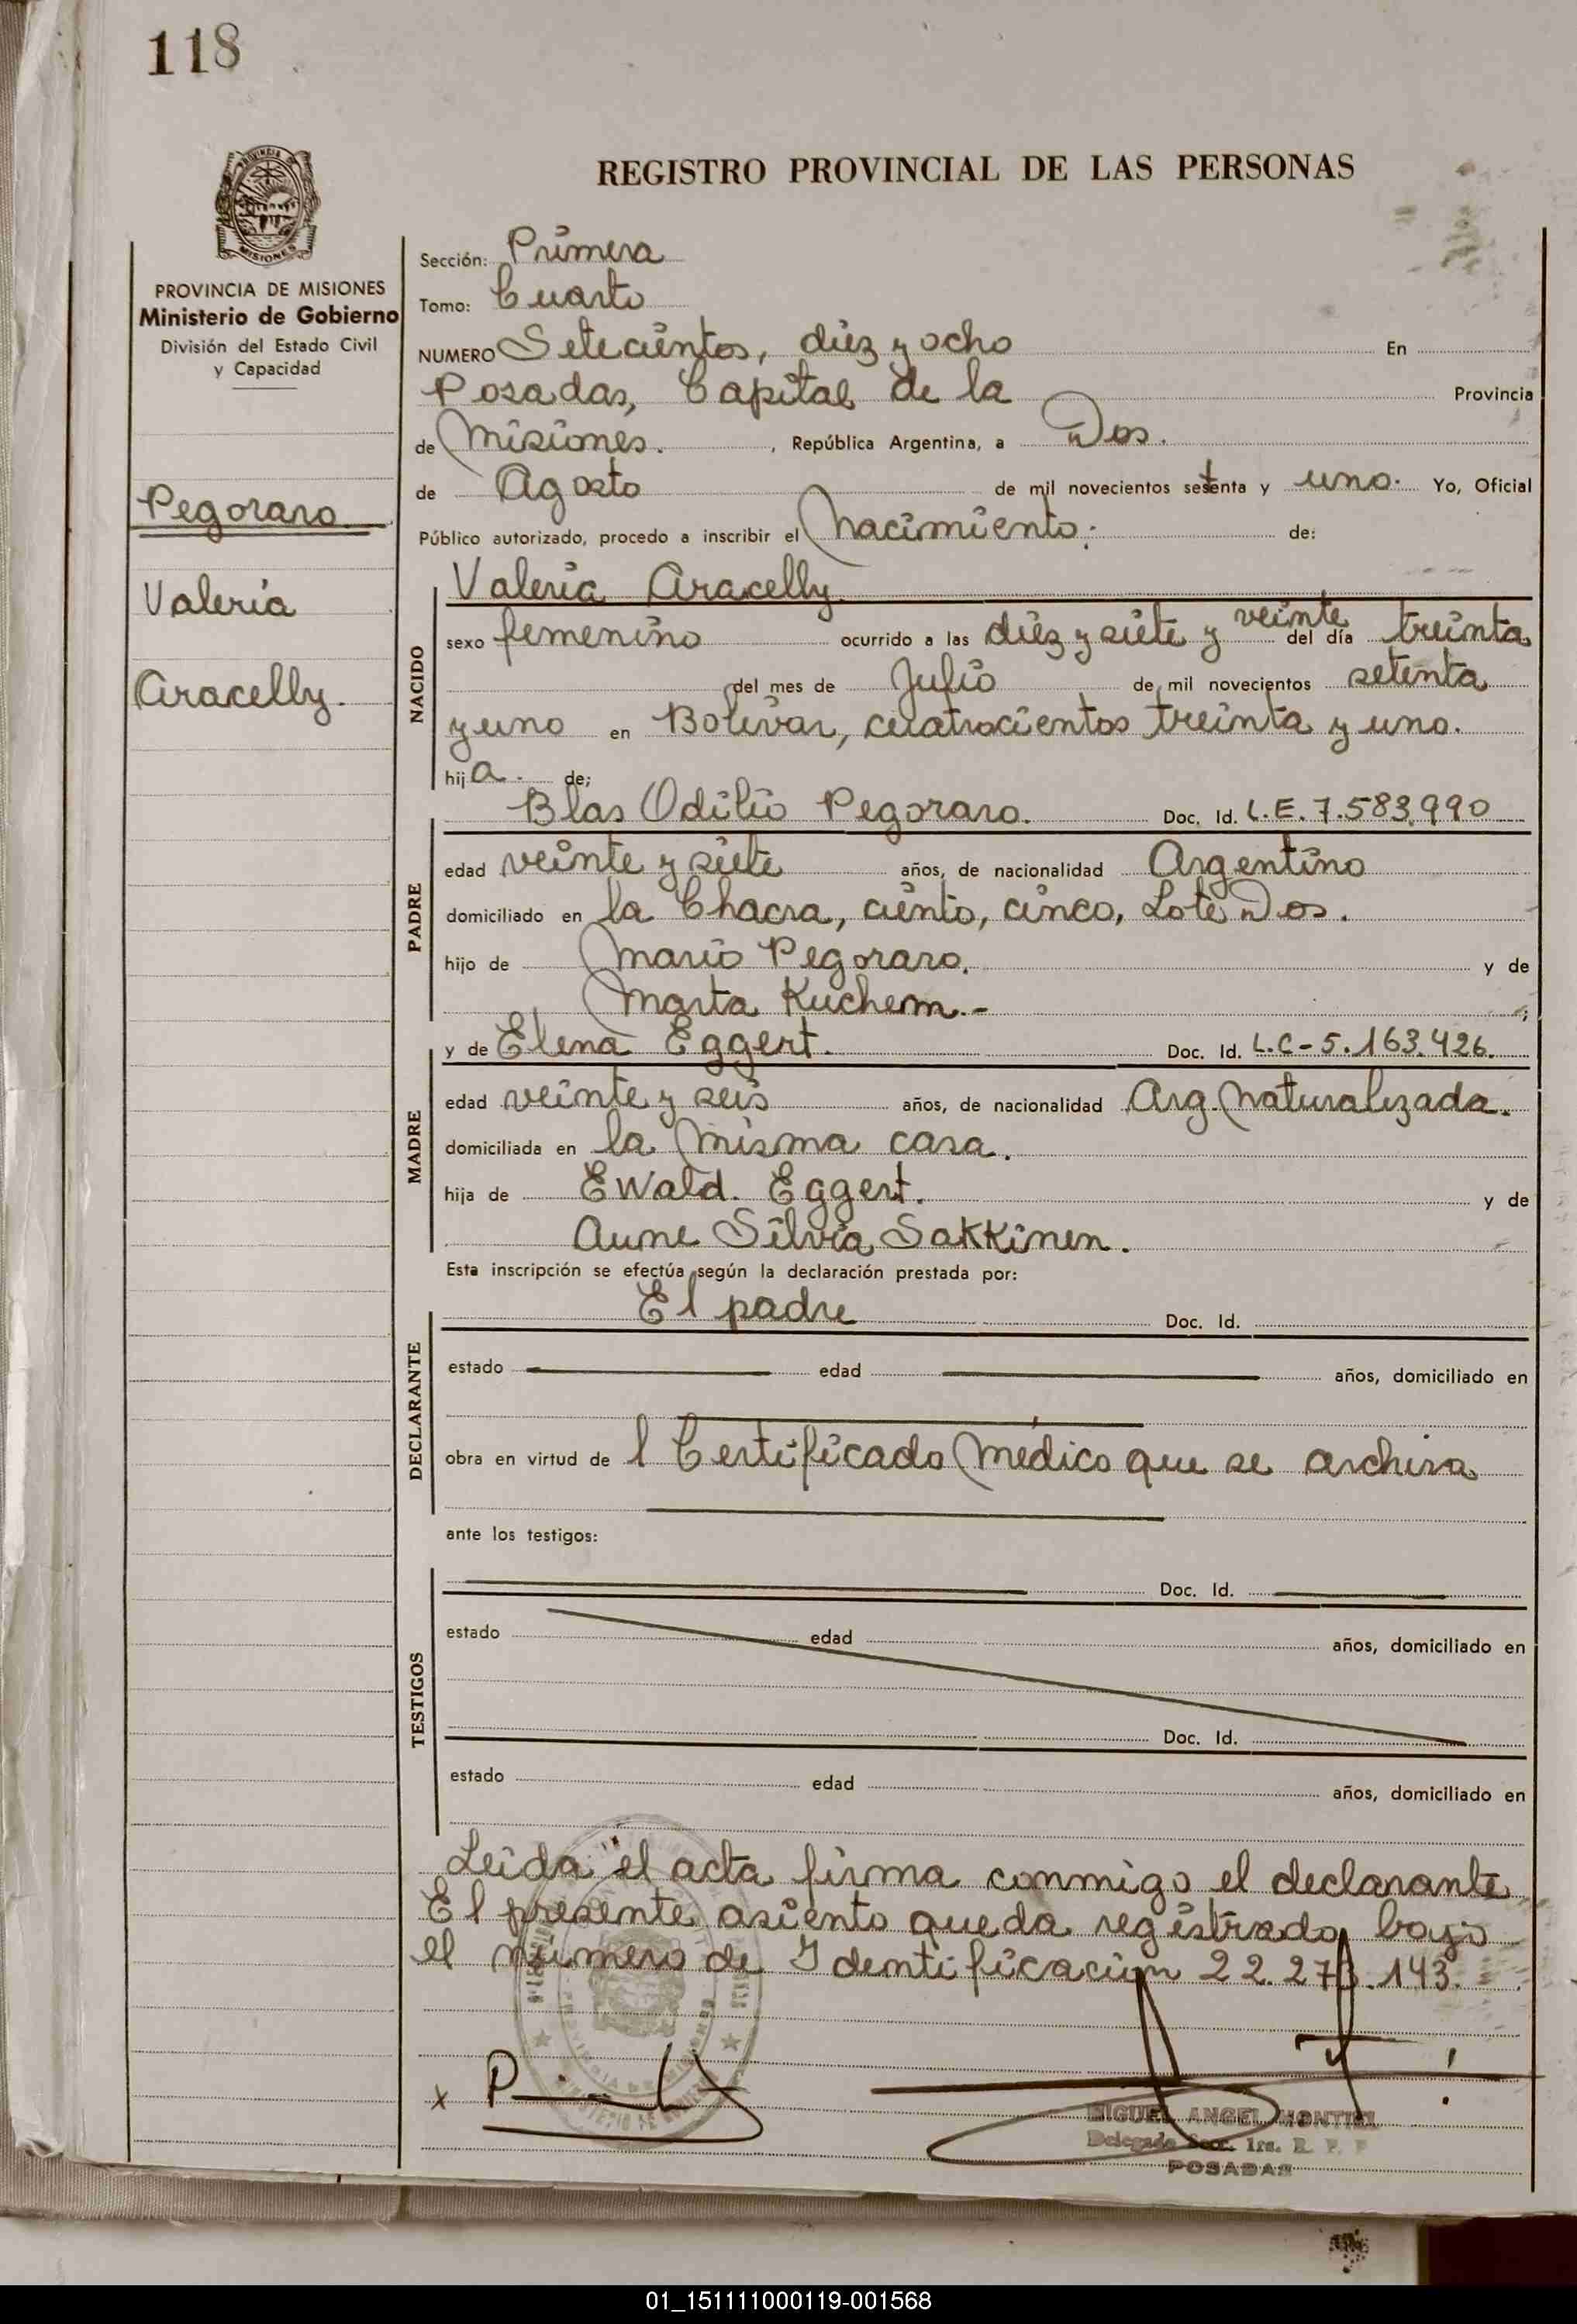 118
PROVINCIA DE MISIONES
REGISTRO PROVINCIAL DE LAS PERSONAS
PROVINCIA DE MISIONES
Ministerio de Gobierno
División del Estado Civil
y Capacidad
Pegoraro
Valeria
Aracelly.
Sección: Primera
Tomo: Cuarto
NUMERO Setecientos, diez y ocho En
Posadas, Capital de la Provincia
de Misiones. , República Argentina, a Dos.
de Agosto de mil novecientos setenta y uno. Yo, Oficial
Público autorizado, procedo a inscribir el Nacimiento: de:
NACIDO
Valeria Aracelly
sexo femenino ocurrido a las diez y siete y veinte del día treinta
del mes de Julio de mil novecientos setenta
y uno en Bolivar, cuatrocientos treinta y uno.
hija. de;
PADRE
Blas Odilio Pegoraro. Doc. Id. L.E. 7.583.990
edad veinte y siete años, de nacionalidad Argentino
domiciliado en la Chacra, ciento, cinco, Lote Dos.
hijo de Mario Pegoraro. y de
Marta Kuchem.- ;
MADRE
y de Elena Eggert. Doc. Id. L.C-5.163.426.
edad veinte y seis años, de nacionalidad Arg. Naturalizada.
domiciliada en la Misma casa.
hija de Ewald. Eggert. y de
Aune Silvia Sakkinen.
Esta inscripción se efectúa según la declaración prestada por:
DECLARANTE
El padre Doc. Id.
estado edad años, domiciliado en
obra en virtud de l Certificado Médico que se archiva
ante los testigos:
TESTIGOS
Doc. Id.
estado edad años, domiciliado en
Doc. Id.
estado edad años, domiciliado en
Leida el acta firma conmigo el declarante
El presente asiento queda registrado bajo
el número de Identificación 22.273.143.
x
MIGUEL ANGEL MONTIEL
Delegado Secc. 1ra. R. P. P
POSADAS
01_151111000119-001568